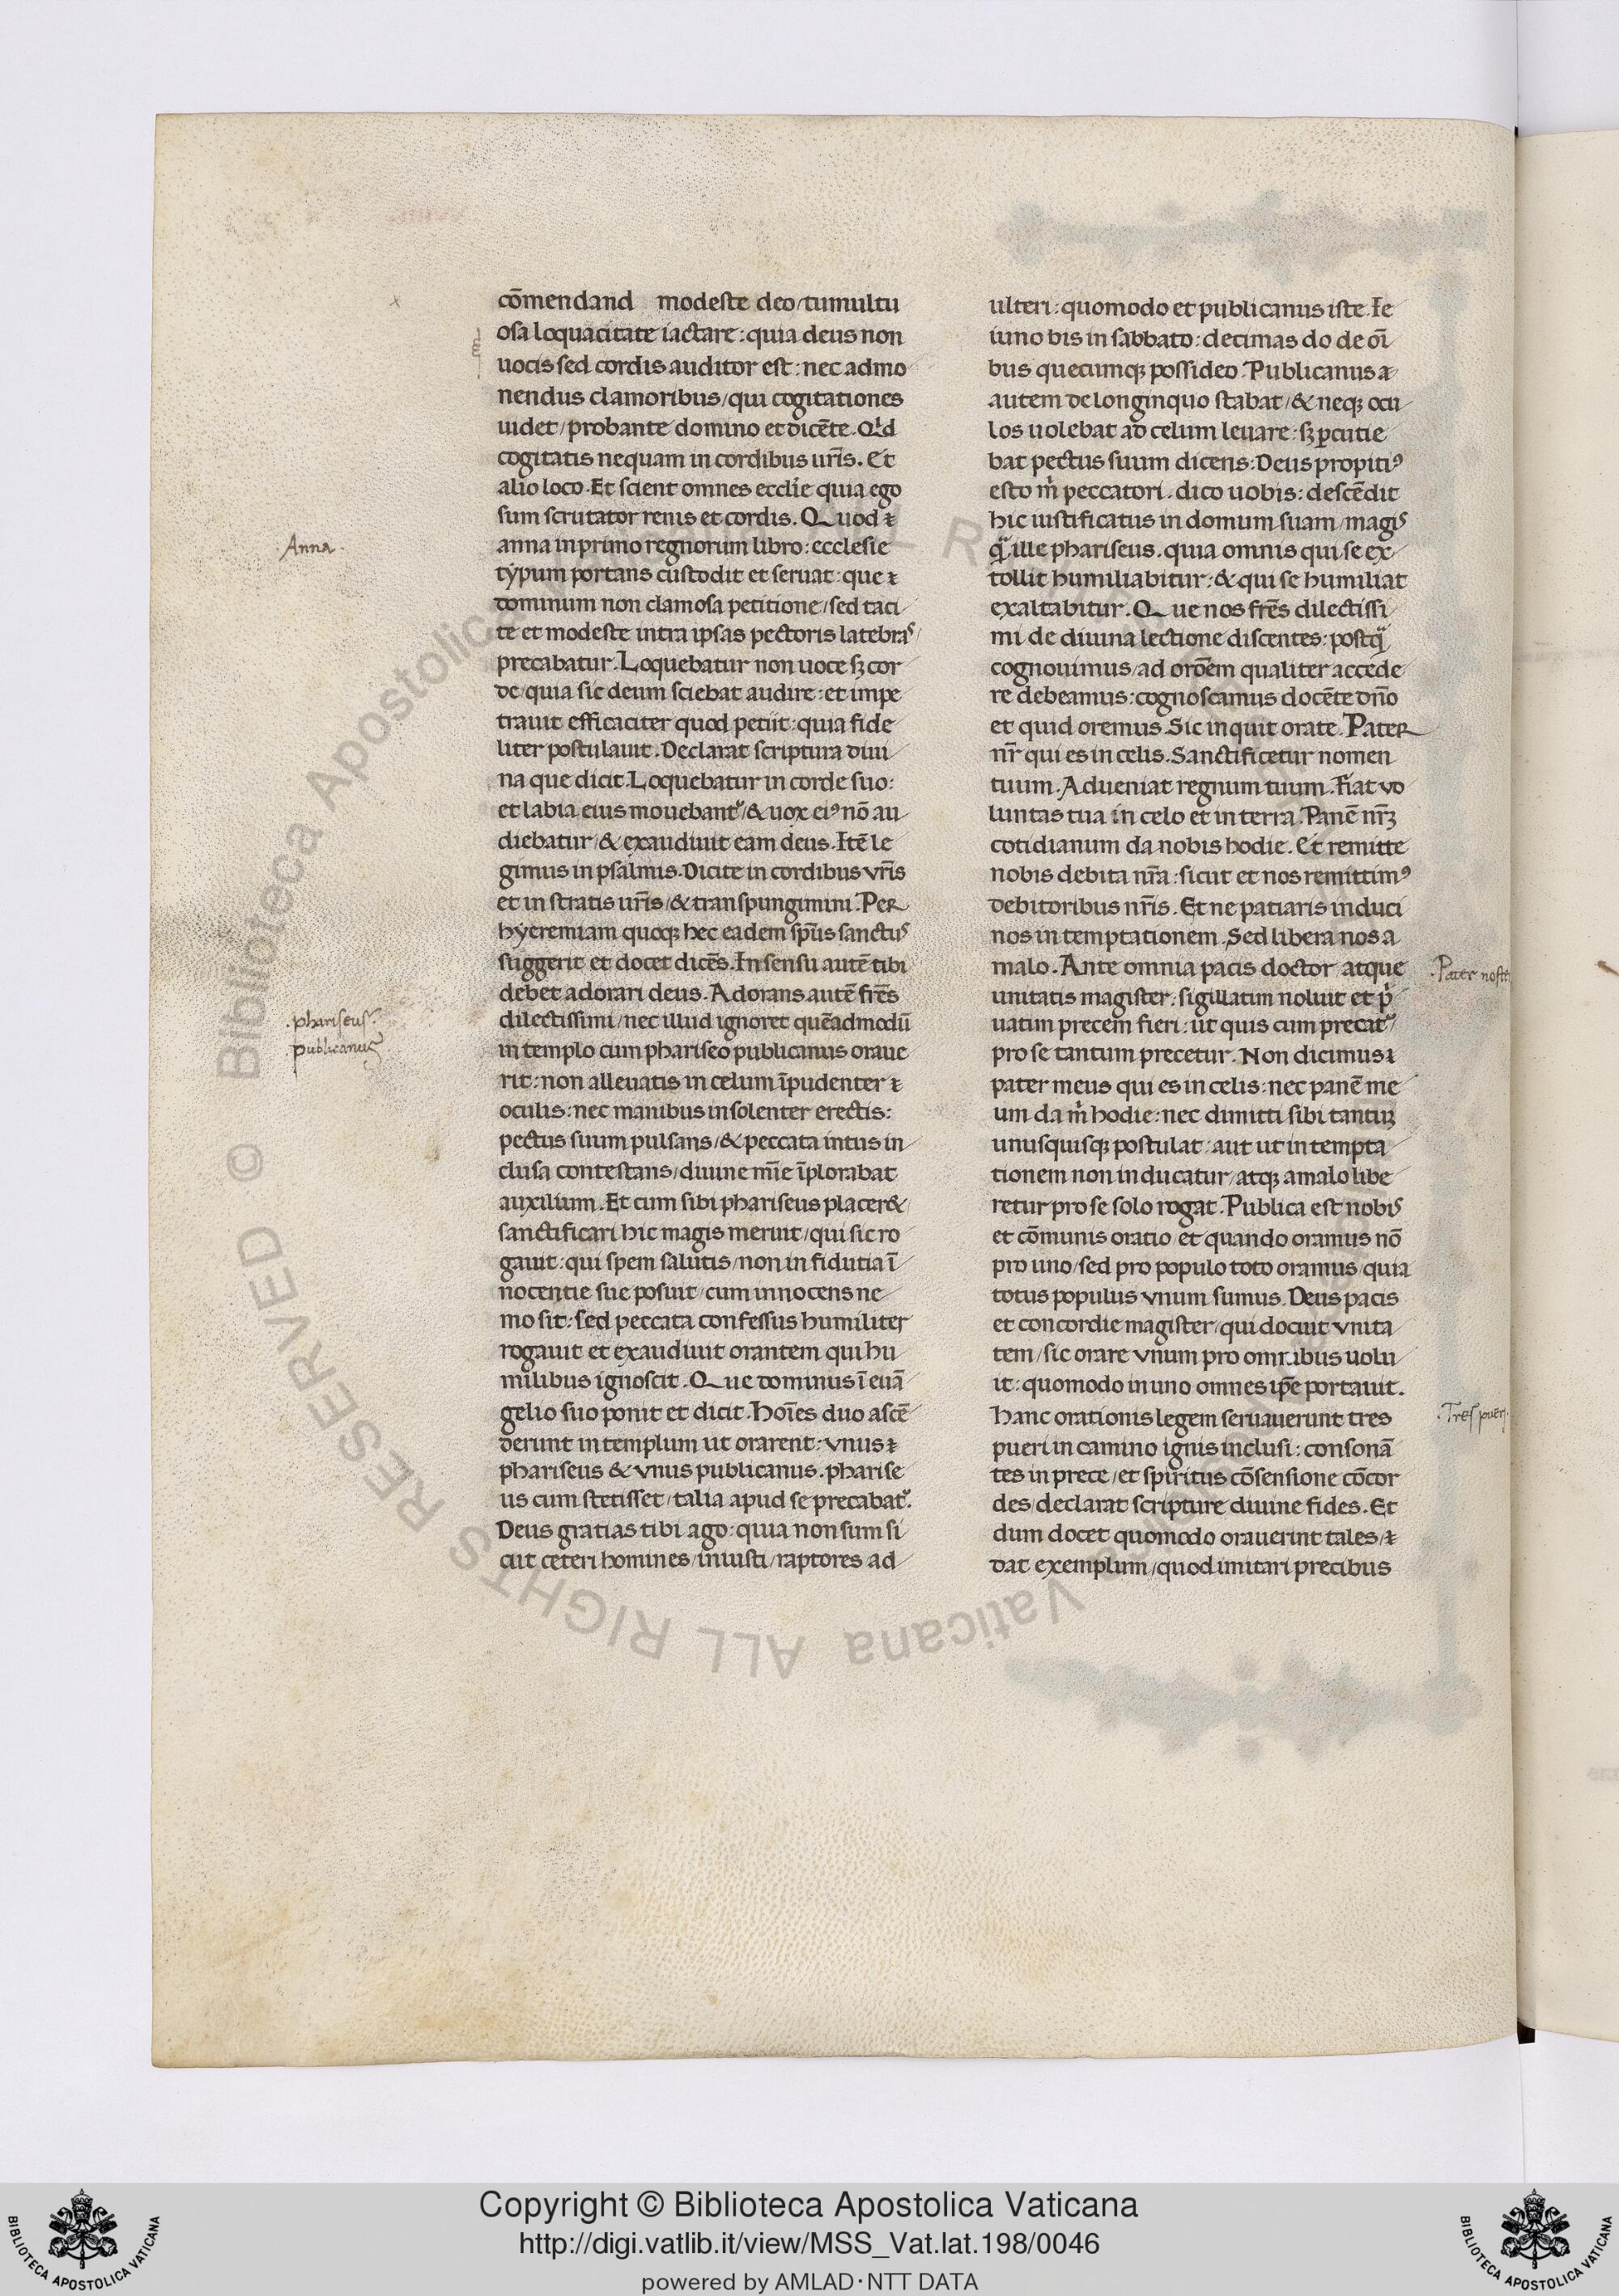 cōmendand modeste deo/tumultu
osa loquacitate iactare: quia deus non
uocis sed cordis auditor est: nec admo
nendus clamoribus/qui cogitationes
uidet/probante domino et dicēte. Qid
cogitatis nequam in cordibus ur̄is. Et
alio loco. Et scient omnes eccl̄ie quia ego
sum scrutator renis et cordis. Quod
anna in primo regnorum libro: ecclesie
typum portans custodit et seruat: que
dominum non clamosa petitione/sed taci
te et modeste intra ipsas pectoris latebras
precabatur. Loquebatur non uoce sꝫ cor
de/quia sic deum sciebat audire: et impe
trauit efficaciter quod petiit: quia fide
liter postulauit. Declarat scriptura diui
na que dicit. Loquebatur in corde suo:
et labia eius mouebantᷣ/& uox eiꝰ nō au
diebatur/& exaudiuit eam deus. Itē le
gimus in psalmis. Dicite in cordibus vr̄is
et in stratis ur̄is/& transpungimini. Per
hyeremiam quoqꝫ hec eadem sp̄us sanctus
suggerit et docet dicēs. In sensu autē tibi
debet adorari deus. Adorans autē fr̄es
dilectissimi/nec illud ignoret quēadmodū
in templo cum phariseo publicanus oraue
rit: non alleuatis in celum īpudenter
oculis: nec manibus insolenter erectis:
pectus suum pulsans/& peccata intus in
clusa contestans/diuine mīe īplorabat
auxilium. Et cum sibi phariseus placer&
sanctificari hic magis meruit/qui sic ro
gauit: qui spem salutis/non in fidutia ī
nocentie sue posuit/cum innocens ne
mo sit: sed peccata confessus humiliter
rogauit et exaudiuit orantem qui hu
milibus ignoscit. Que dominus ī euā
gelio suo ponit et dicit. Hoīes duo ascē
derunt in templum ut orarent: vnus
phariseus & vnus publicanus. pharise
us cum stetisset/talia apud se precabatᷣ.
Deus gratias tibi ago: quia non sum si
cut ceteri homines/iniusti/raptores ad
ulteri: quomodo et publicanus iste. Ie
iuno bis in sabbato: decimas do de oī
bus quecumqꝫ possideo. Publicanus
autem de longinquo stabat/& neqꝫ ocu
los uolebat ad celum leuare: sꝫ ꝑcutie
bat pectus suum dicens: Deus propitiꝰ
esto mͥ peccatori. dico uobis: descēdit
hic iustificatus in domum suam/magis
qͣ ille phariseus. quia omnis qui se ex
tollit humiliabitur: & qui se humiliat
exaltabitur. Que nos fr̄es dilectissi
mi de diuina lectione discentes: postqͣ
cognouimus/ad orōem qualiter accede
re debeamus: cognoscamus docēte dn̄o
et quid oremus. Sic inquit orate. Pater
nr̄ qui es in celis. Sanctificetur nomen
tuum. Adueniat regnum tuum. Fiat vo
luntas tua in celo et in terra. Panē nr̄ꝫ
cotidianum da nobis hodie. Et remitte
nobis debita nr̄a: sicut et nos remittimꝰ
debitoribus nr̄is. Et ne patiaris induci
nos in temptationem. Sed libera nos a
malo. Ante omnia pacis doctor atque
unitatis magister: sigillatim noluit et pͥ
uatim precem fieri: ut quis cum precatᷣ/
pro se tantum precetur. Non dicimus
pater meus qui es in celis: nec panē me
um da mͥ hodie: nec dimitti sibi tantuꝫ
unusquisqꝫ postulat: aut ut in tempta
tionem non inducatur/atqꝫ a malo libe
retur pro se solo rogat. Publica est nobis
et cōmunis oratio/et quando oramus nō
pro uno/sed pro populo toto oramus/quia
totus populus vnum sumus. Deus pacis
et concordie magister/qui docuit vnita
tem/sic orare vnum pro omnibus uolu
it: quomodo in uno omnes ip̄e portauit.
Hanc orationis legem seruauerunt tres
pueri in camino ignis inclusi: consonā
tes in prece/et spiritus cōsensione cōcor
des/declarat scripture diuine fides. Et
dum docet quomodo orauerint tales/
dat exemplum/quod imitari precibus
.Anna.
.phariseus.
.publicanus
.Pater noste
.Tres pueri.
© Biblioteca Apostolica Vaticana ALL RIGHTS RESERVED
Copyright © Biblioteca Apostolica Vaticana
http://digi.vatlib.it/view/MSS_Vat.lat.198/0046
powered by AMLAD·NTT DATA
BIBLIOTECA APOSTOLICA VATICANA
BIBLIOTECA APOSTOLICA VATICANA